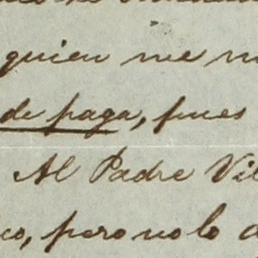 quien me
de paga, pues
Al Padre Vil
pero no lo